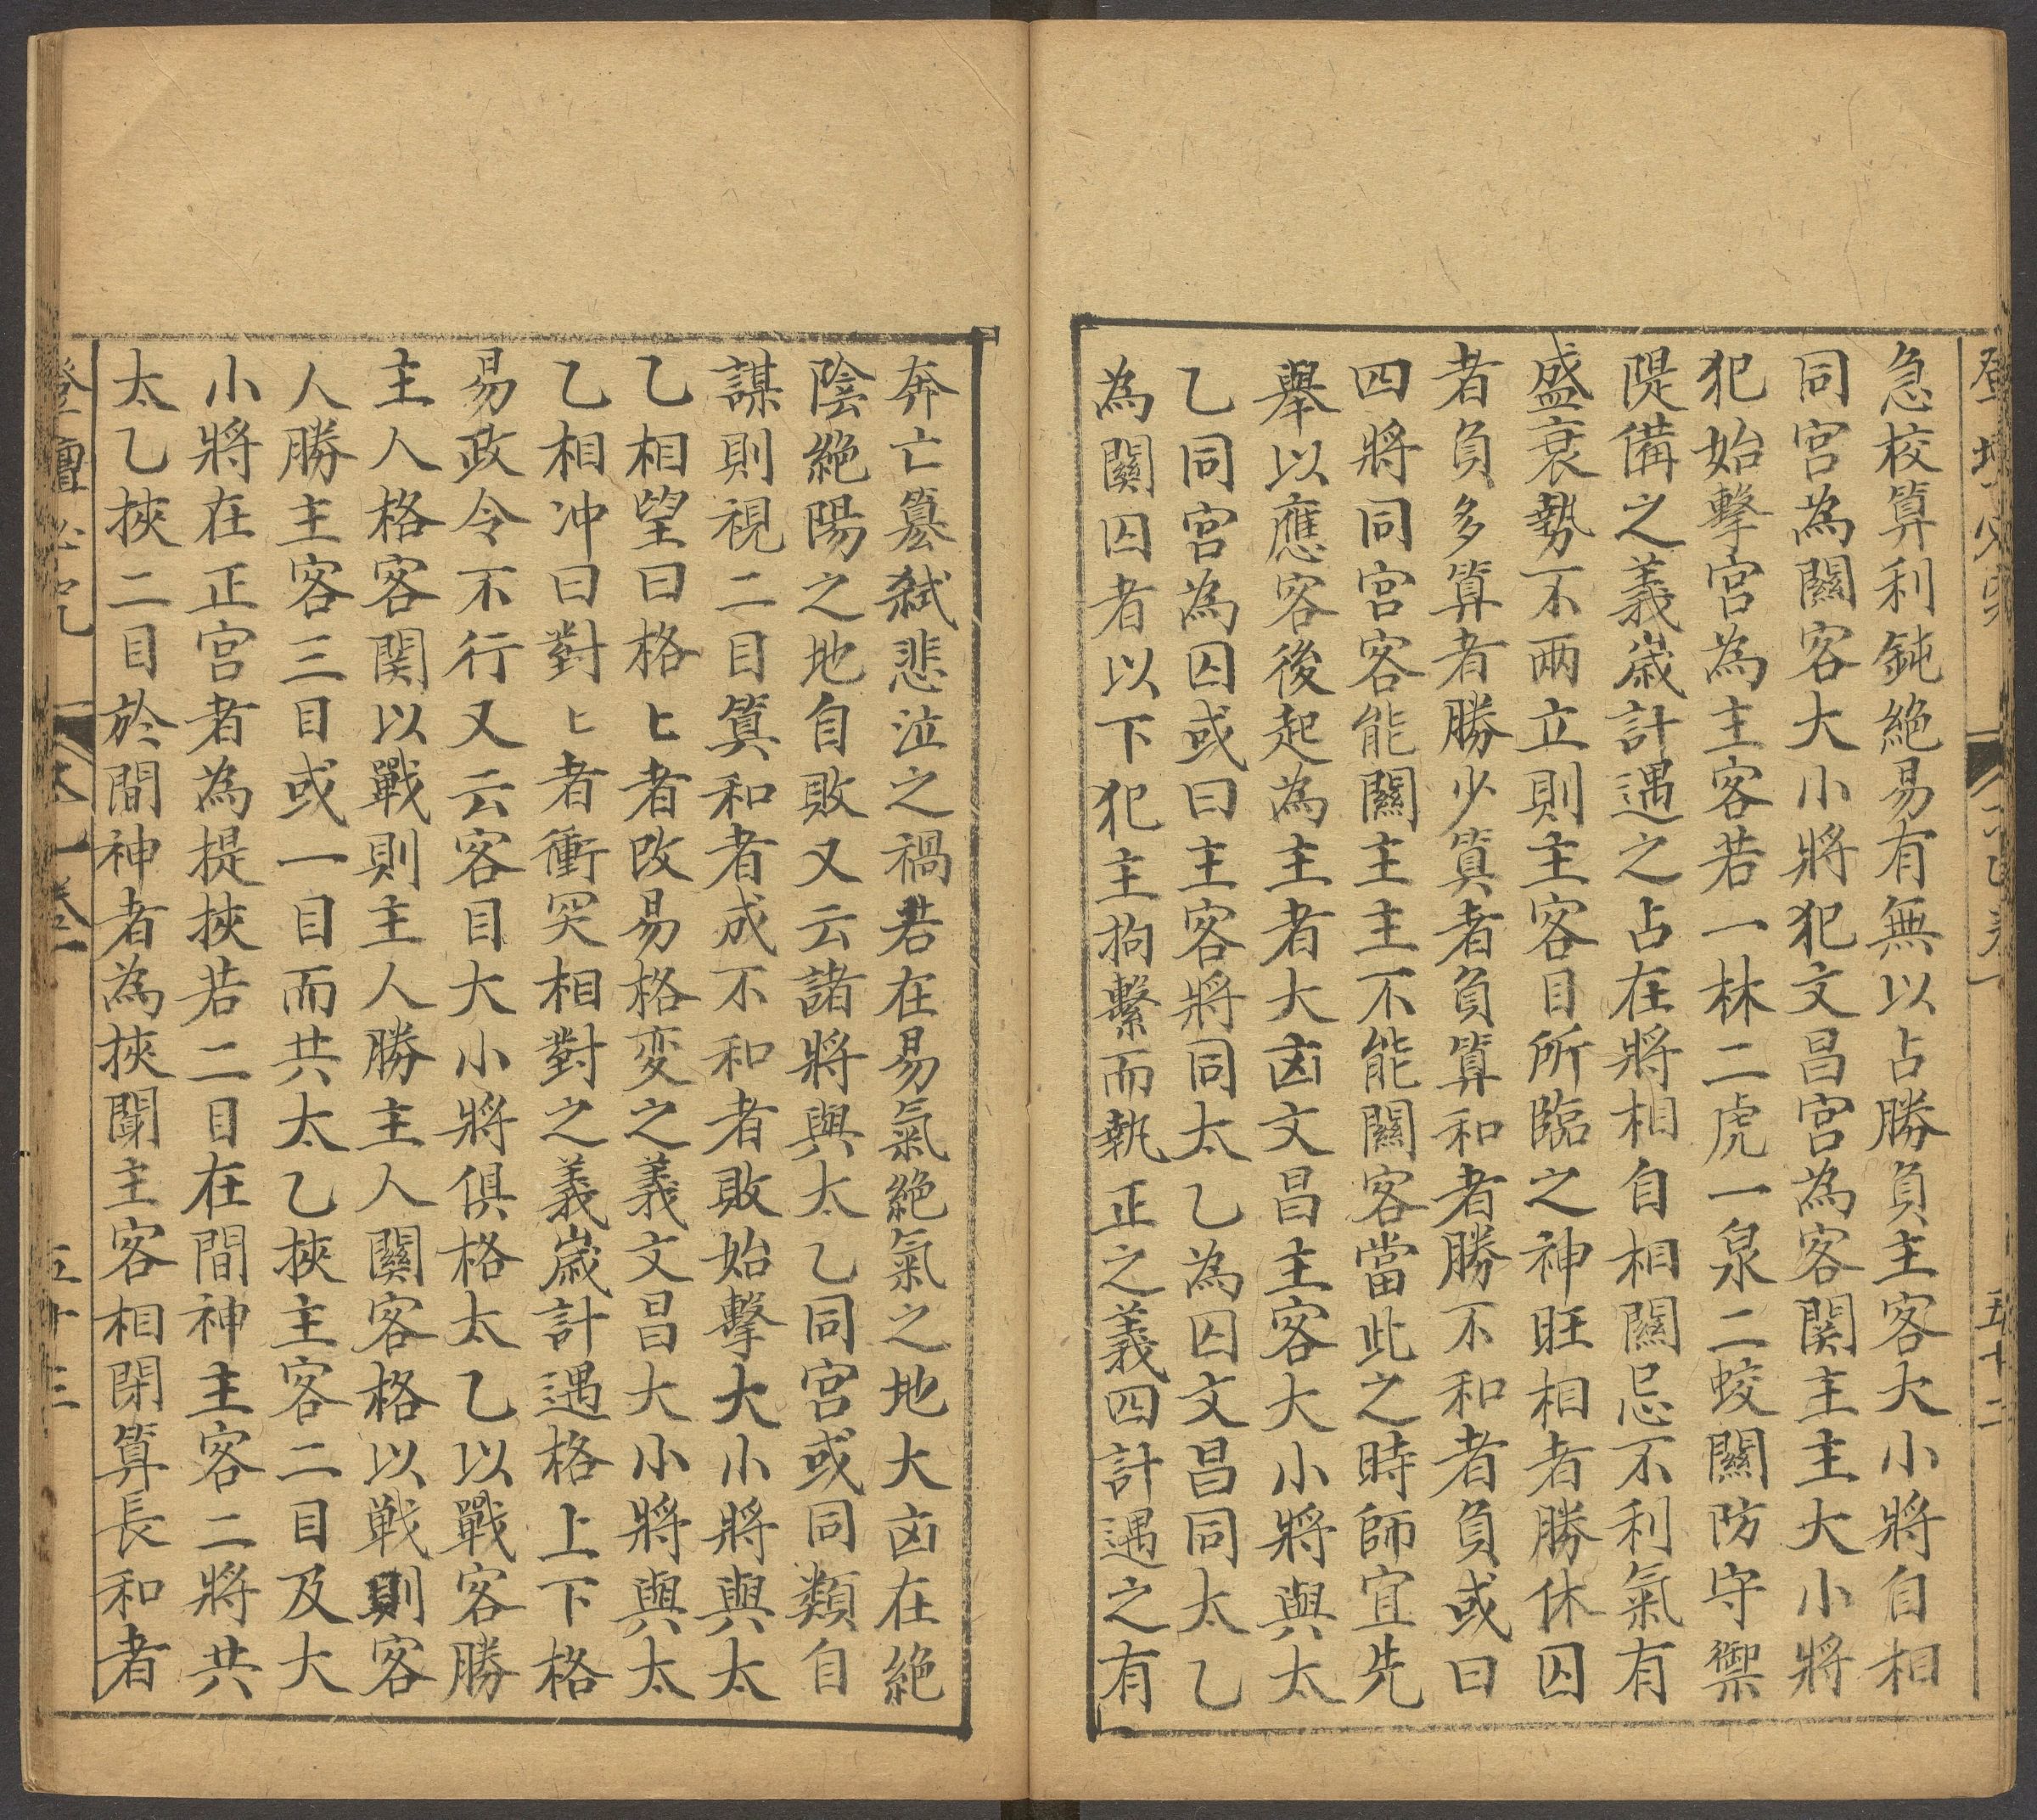 急校算利鈍絶易有無以占勝負主客大小將自相
同宮為關客大小將犯文昌宮為客関主主大小將
犯始擊宮為主客若一林二虎一泉二蛟關防守禦
隄備之義嵗計遇之占在將相自相關忌不利氣有
盛衰勢不兩立則主客目所臨之神旺相者勝休囚
者負多算者勝少算者負算和者勝不和者負或曰
四將同宮客能關主主不能關客當此之時師宜先
舉以應客後起為主者大凶文昌主客大小將與太
乙同宮為囚或曰主客將同太乙為囚文昌同太乙
為關囚者以下犯主拘繫而執正之義四計遇之有
奔亡簒弑悲泣之禍若在易氣絕氣之地大凶在絕
陰絕陽之地自敗又云諸將與太乙同宮或同類自
謀則視二目算和者成不和者敗始擊大小將與太
乙相望曰格〻者改易格変之義文昌大小將與太
乙相冲曰對〻者衝突相對之義嵗計遇格上下格
易政令不行又云客目大小將俱格太乙以戰客勝
主人格客関以戰則主人勝主人關客格以戦則客
人勝主客三目或一目而共太乙挾主客二目及大
小將在正宮者為提挾若二目在間神主客二將共
太乙挾二目於間神者為挾關主客相閉算長和者
登壇必究 卷一 五十三